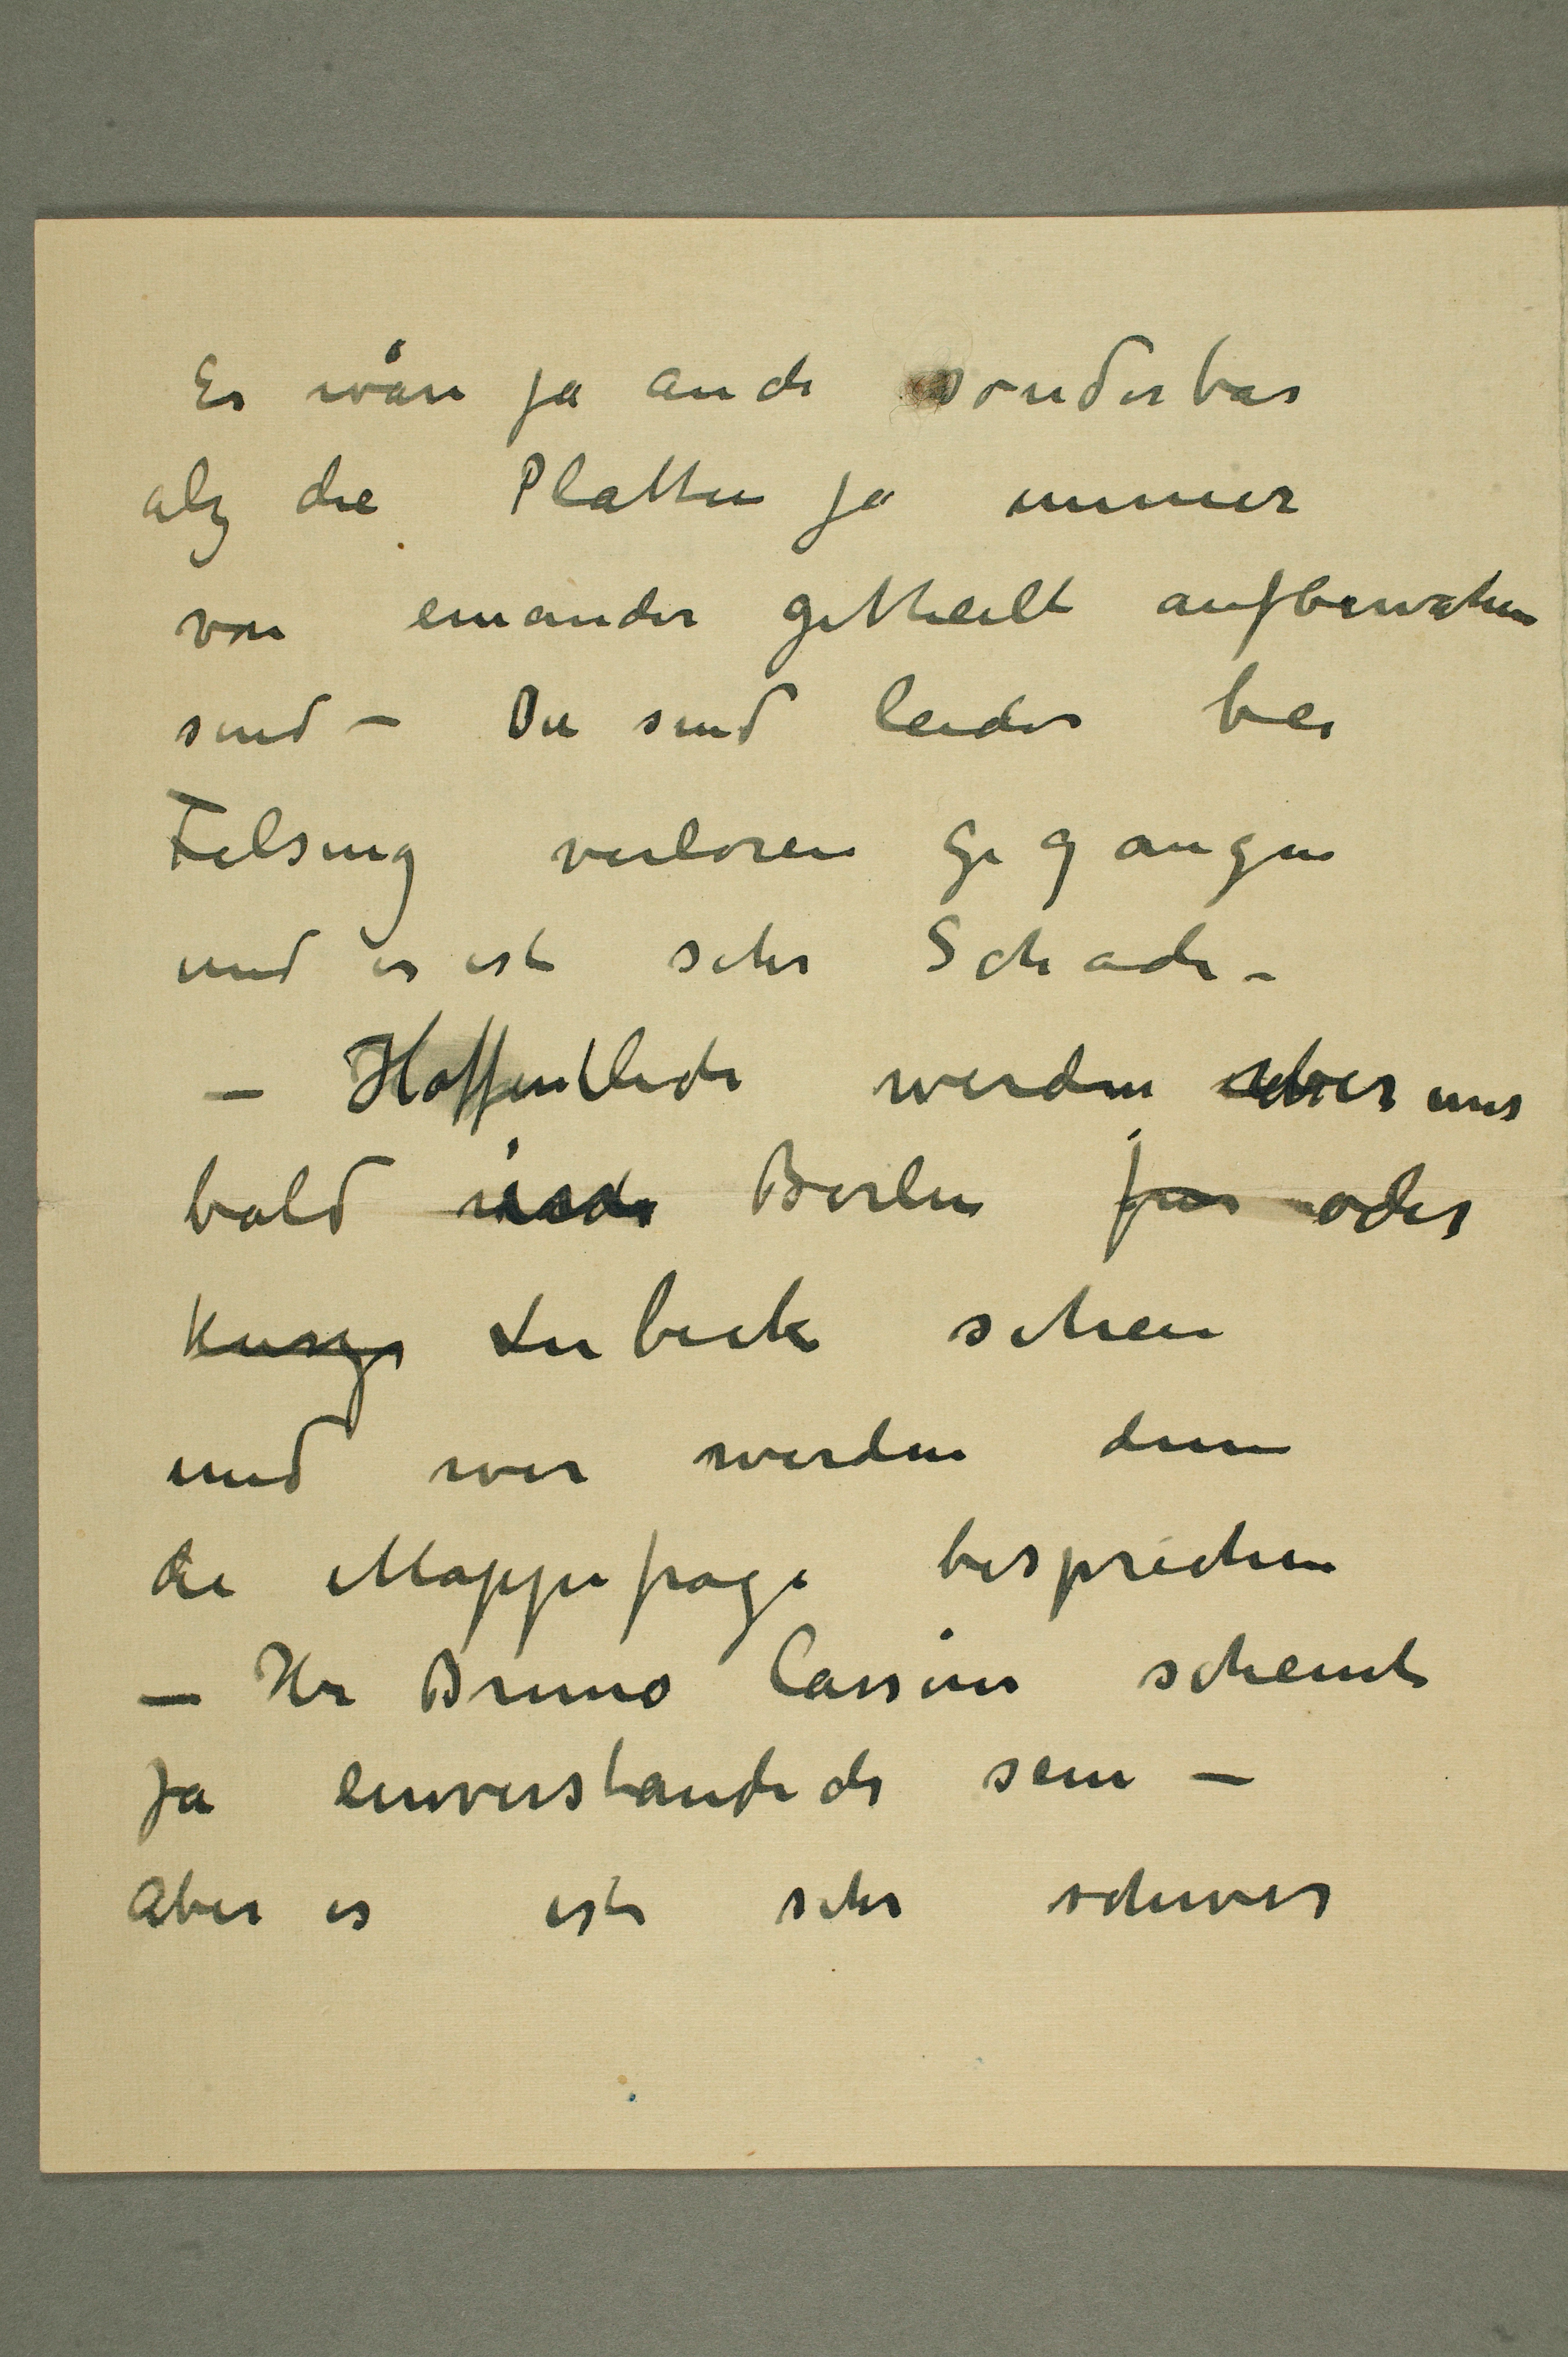 Es wäre ja auch sonderbar
alz die Platten ja immer
von einander getheilt aufbewahren
sind – Die sind leider bei
Felsing verloren gegangen
und es ist sehr Schade –
– Hoffentlich werden wir uns
bald in Berlin für oder
kurze Lubeck sehen
und wir werden denn
die Mappefrage besprechen
– Hr Bruno Cassirer scheint
ja einverstandich sein –
aber es ist sehr schwer